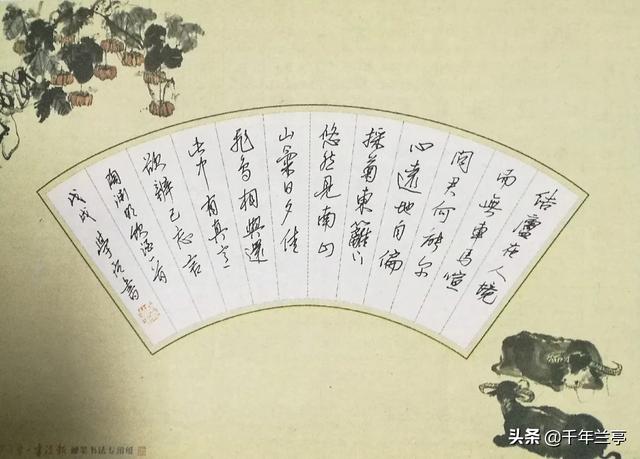 结廬在人境
而無車馬喧
问君何能尔
心遠地自偏
採菊東籬下
悠然見南山
山氣日夕佳
飛鳥相與還
此中有真意
欲辨已忘言
陶渊明饮酒一首
戊戌 學書
書法報 硬笔书法专用纸
头条 @千年兰亭